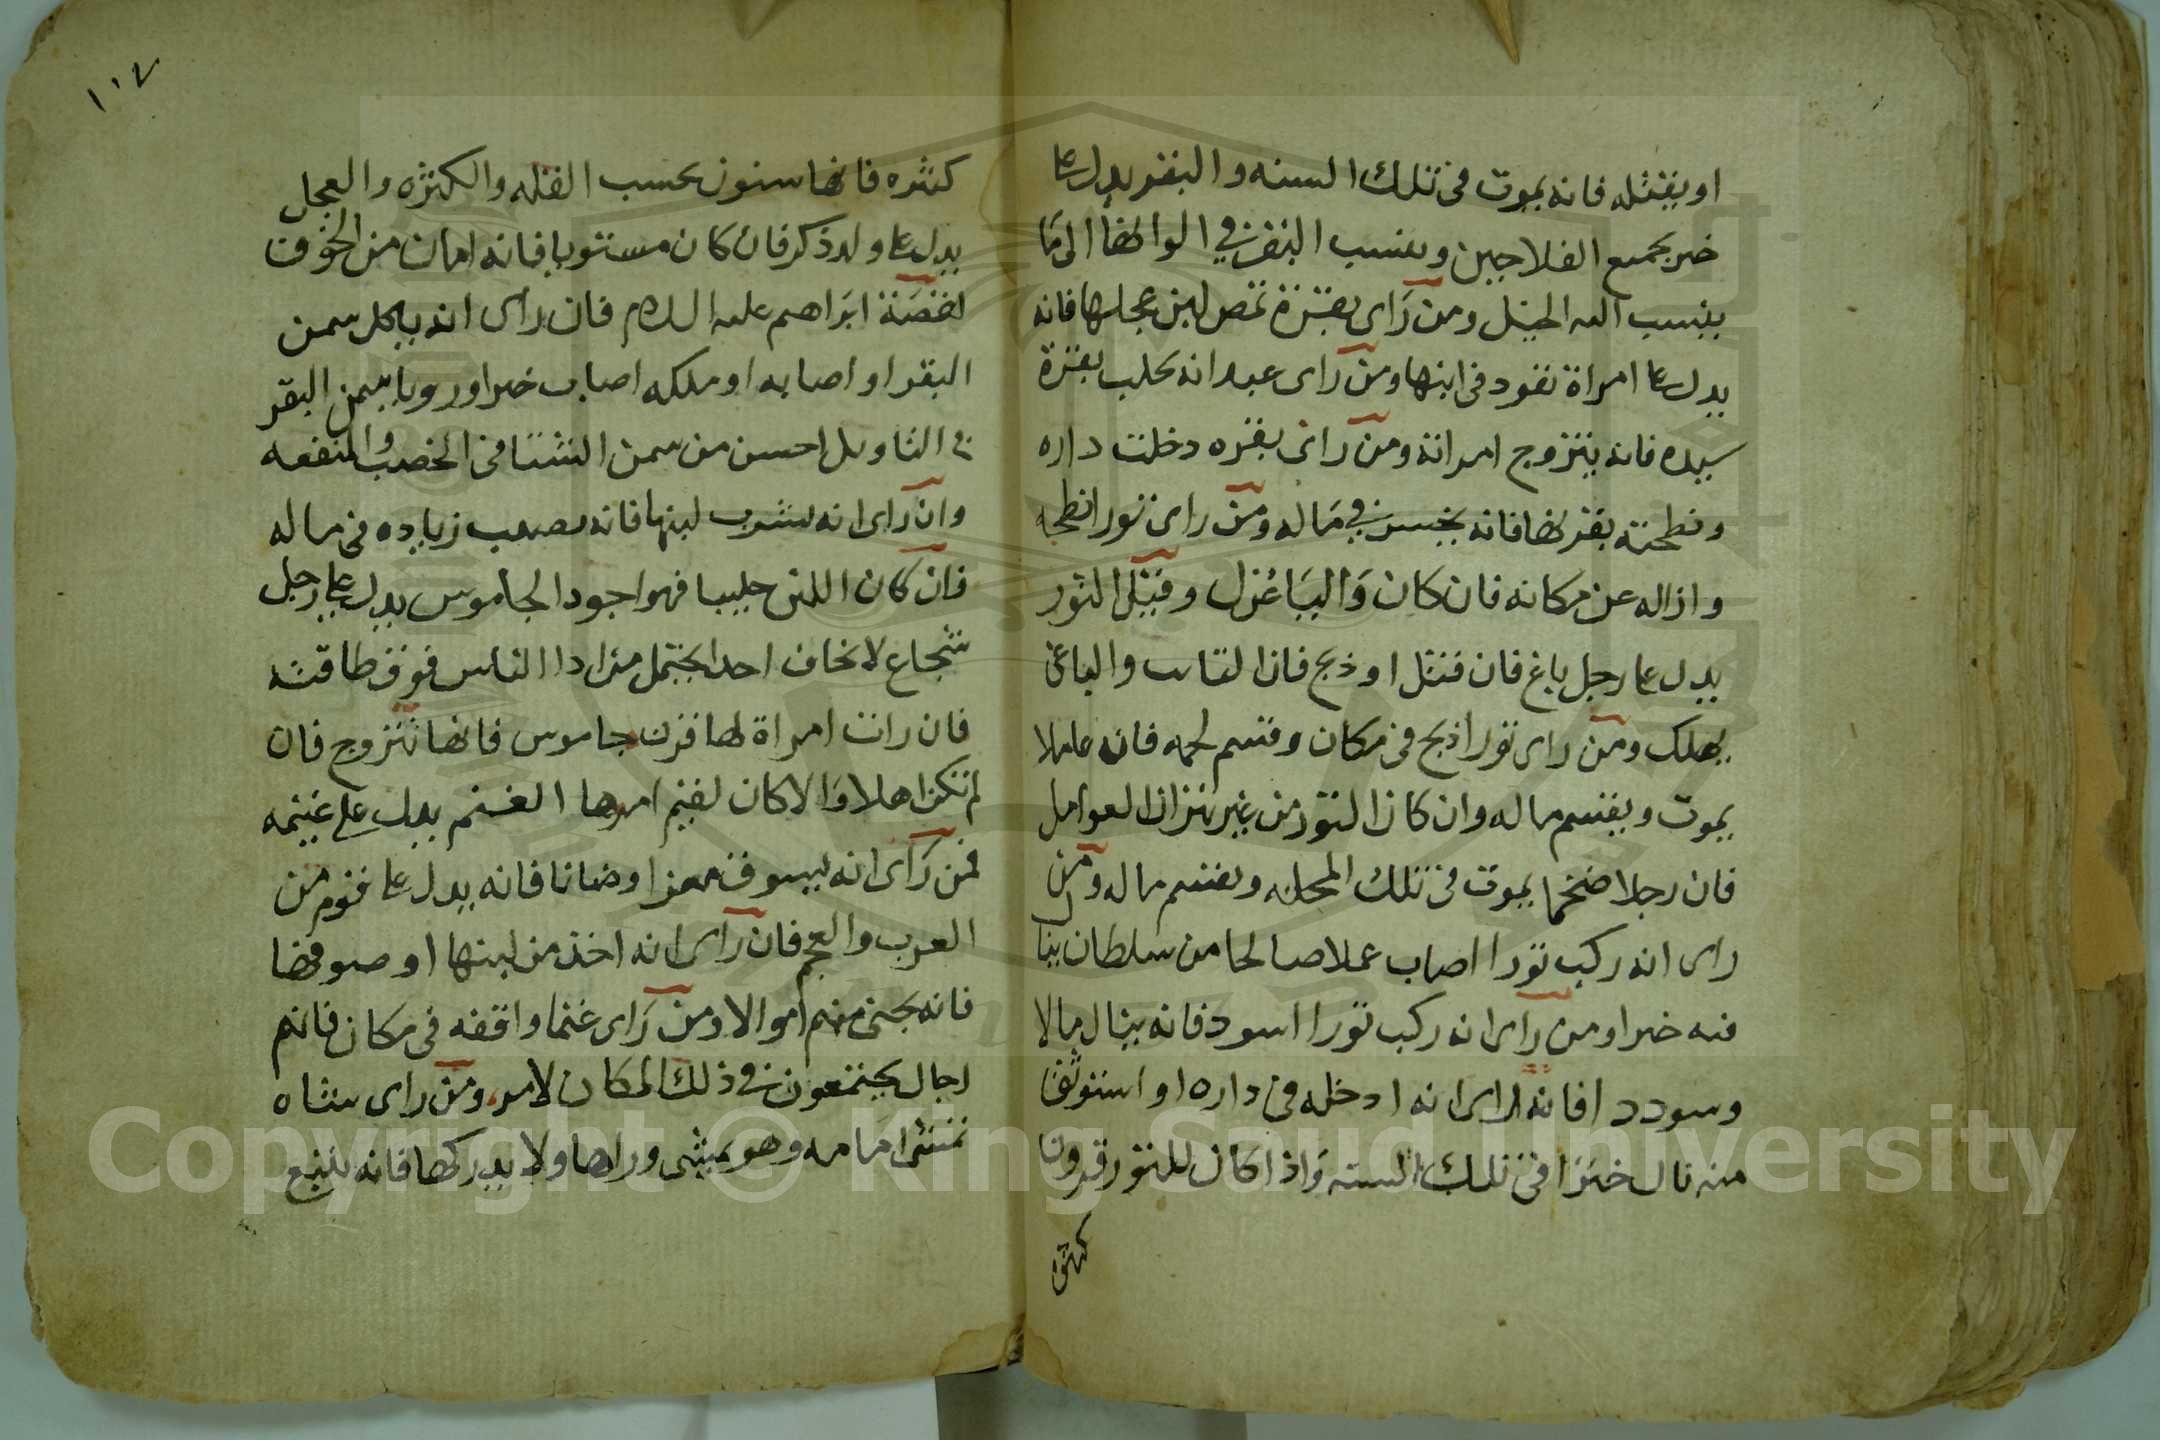 او يقتله فانه يموت فى تلك السنه والبقر يدل على
خير بجميع الفلاحين وينسب البقر فى الوانها الى ما
ينسب اليه الخيل ومن رَاى بقرة تمص لبن عجلها فانه
يدل على امراة تقود فى ابنها ومن رَاى عبد انه يحلب بقرة
سيده فانه يتزوج امراته ومن راى بقره دخلت داره
ونطحته بقرنها فانه يخسر فى ماله ومن راى ثورا نطحه
وازاله عن مكانه فان كان وَاليَا عُزل وقيل الثور
يدل على رجل باغ فان قتل او ذبح فان القاتل والباغى
يهلك ومن راى ثورا ذبح فى مكان وقسم لحمه فان عاملا
يموت ويقسم ماله وان كان الثور من غير ثيران العوامل
فان رجلا ضخما يموت فى تلك المحله ويقسم ماله ومن
راى انه ركب ثورا اصاب عملا صالحا من سلطان ينال
فيه خيرا ومن راى انه ركب ثورا اسود فانه ينال مالا
وسوددا فانه راى انه ادخله فى داره او استوثق
منه نال خيرا فى تلك السنه وَاذا كان للثور قرون
كثيره
١٠٧
كثيره فانها سنون بحسب القله والكثره والعجل
يدل على ولد ذكر فان كان مستويا فانه امان من الخوف
لقصَة ابَراهيم عليه السلام فان راى انه ياكل سمن
البقر او اصابه او ملكه اصاب خيرا ورويا سمن البقر
فى التاويل احسن من سمن الشتا فى الخصب والمنفعه
وان رَاى انه يشرب لبنها فانه يصيب زياده فى ماله
فان كان اللبن حليبا فهو اجود الجاموس يدل على رجل
شجاع لا يخاف احدا يحتمل من اذا الناس فوق طاقته
فان رات امراة لها قرن جاموس فانها تتزوج فان
لم تكن اهلا وَالا كان لقيم امرها الغنم يدل على غنيمه
فمن رَاى انه يسوق معزا وضانا فانه يدل على قوم من
العرب والعجم فان رَاى انه اخذ من لبنها او صوفها
فانه يجنى منهم اموالا ومن رَاى غنما واقفه فى مكان فانهم
رجال يجتمعون فى ذلك المكان لامر ومن راى شاه
تمشى امَامه وهو يمشى وراها ولا يدركها فانه يتبع
Copyright © King Saud University